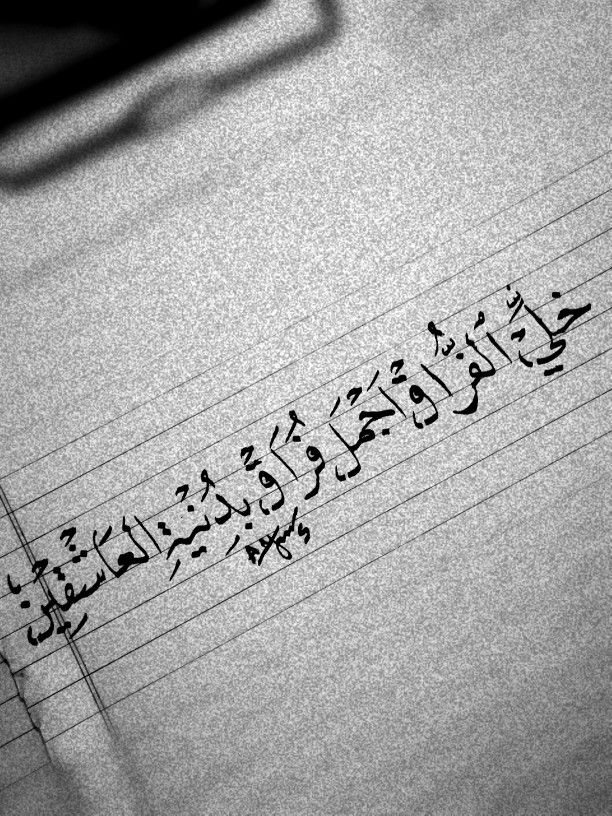 خلي الفراق أجمل فراق بدنية العاشقين